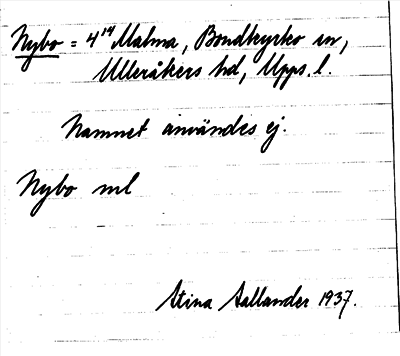 Nybo = 4¹⁹ Malma, Bondkyrko sn,
Ulleråkers hd, Upps. l.
Namnet användes ej.
Nybo ml
Stina Aallander 1937.